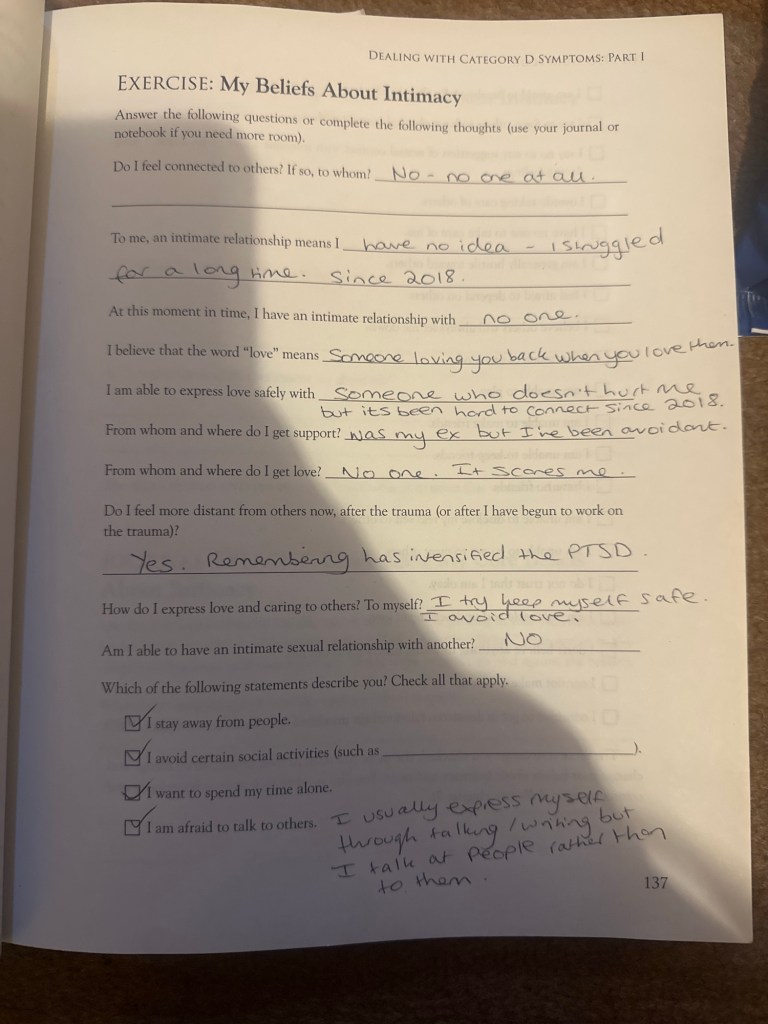 DEALING WITH CATEGORY D SYMPTOMS: PART I
EXERCISE: My Beliefs About Intimacy
Answer the following questions or complete the following thoughts (use your journal or
notebook if you need more room).
Do I feel connected to others? If so, to whom? No - no one at all.
To me, an intimate relationship means I have no idea - I struggled
for a long time. Since 2018.
At this moment in time, I have an intimate relationship with no one.
I believe that the word "love" means Someone loving you back when you love them.
I am able to express love safely with someone who doesn't hurt me
but its been hard to connect since 2018.
From whom and where do I get support? was my ex but I've been avoidant.
From whom and where do I get love? No one. It scares me.
Do I feel more distant from others now, after the trauma (or after I have begun to work on
the trauma)?
Yes. Remembering has intensified the PTSD.
How do I express love and caring to others? To myself? I try keep myself safe.
I avoid love.
Am I able to have an intimate sexual relationship with another? NO
Which of the following statements describe you? Check all that apply.
I stay away from people.
I avoid certain social activities (such as ).
I want to spend my time alone.
I am afraid to talk to others. I usually express myself
through talking / writing but
I talk at people rather than
to them.
137